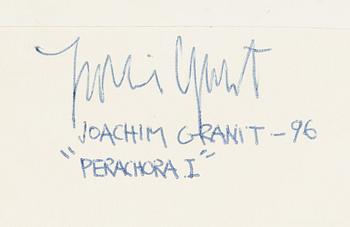 Joachim Granit
JOACHIM GRANIT - 96
"PERACHORA.I"